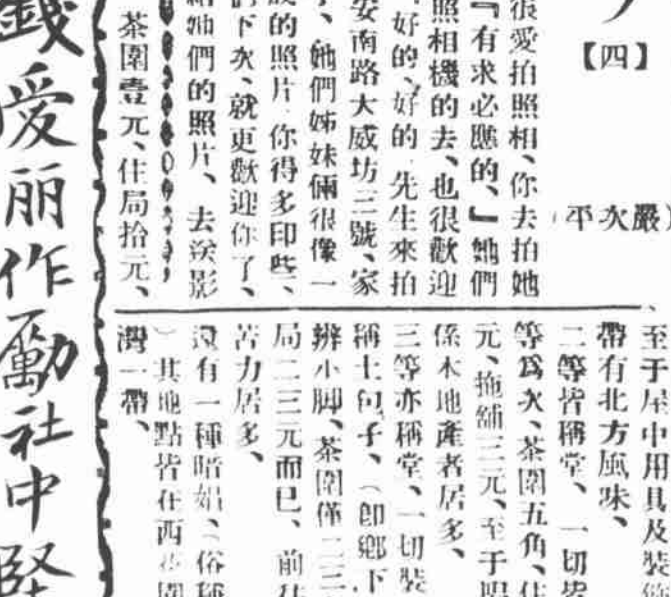 【四】
嚴次平
很愛拍照相、你去拍她
『有求必應的、』她們
照相機的去、也很歡迎
好的、好的、先生來拍
安南路大威坊三號、家
、她們姊妹倆很像一
的照片、你得多印些、
下次、就更歡迎你了、
她們的照片、去
影
茶圍壹元、住局拾元、
至于屋中用具及裝
帶有北方風味、
二等皆稱堂、一切皆
等爲次、茶圍五角、住
元、拖舖三元、至于
係本地產者居多、
三等亦稱堂、一切裝
稱土包子、（卽鄉下
辦小脚、茶圍僅二三
局二三元而已、前
苦力居多、
沒有一種暗娼、（俗稱
）其地點皆在西
園
灣一帶、
錢愛丽作勵社中堅